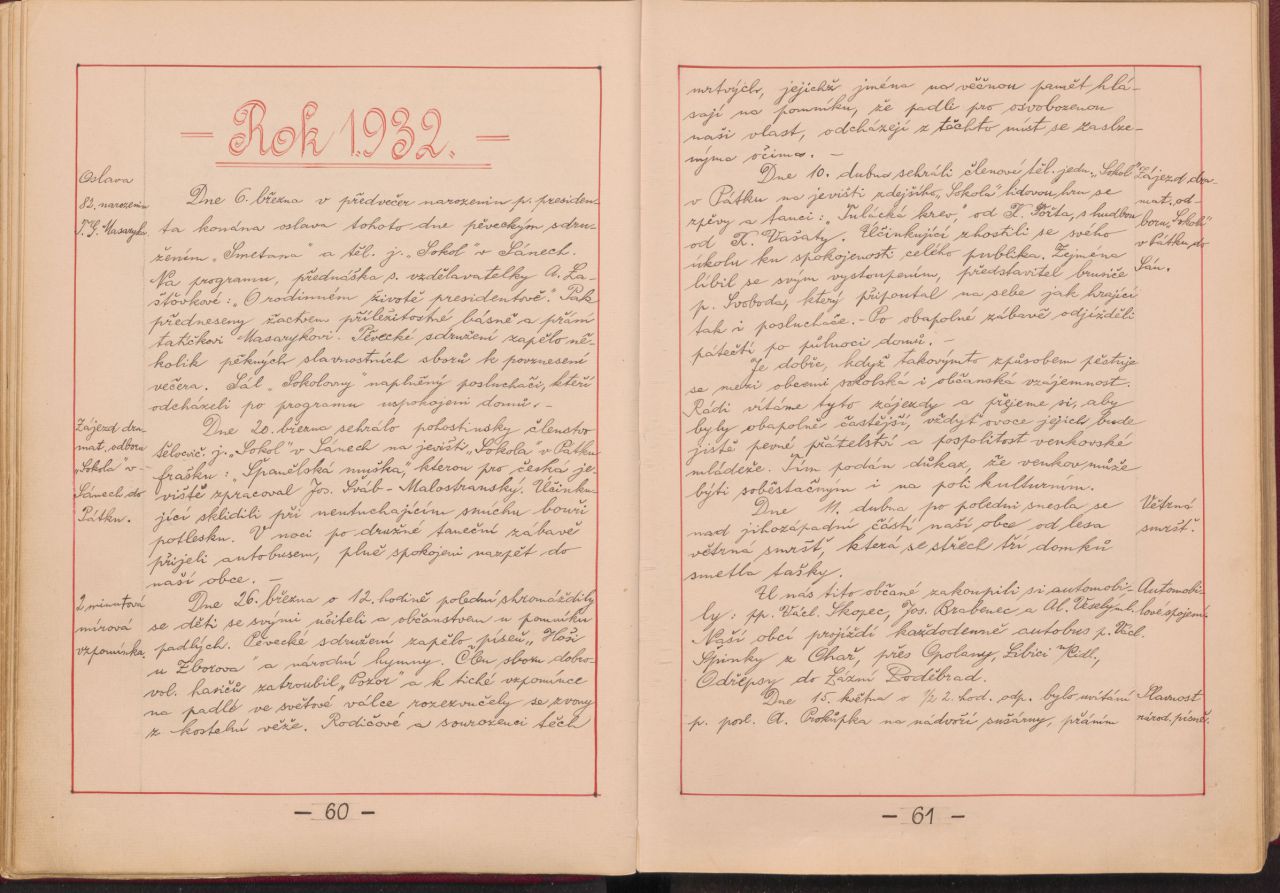 — Rok 1932. —
Oslava
82. narozenin
T. G. Masaryka.
Dne 6. března v předvečer narozenin p. presiden-
ta konána oslava tohoto dne pěveckým sdru-
žením „Smetana" a těl. j. „Sokol" v Sánech.
Na programu, přednáška s. vzdělavatelky A. La-
štovkové: „O rodinném životě presidentově." Pak
předneseny žactvem příležitostné básně a přání
tatíčkovi Masarykovi. Pěvecké sdružení zapělo ně-
kolik pěkných slavnostních sborů k povznesení
večera. Sál „Sokolovny" naplněný posluchači, kteří
odcházeli po programu uspokojeni domů. –
Zájezd dra-
mat. odboru
„Sokola" v
Sánech do
Pátku.
Dne 20. března sehrálo pohostinsky členstvo
tělocvič. j. „Sokol" v Sánech na jevišti „Sokola" v Pátku
frašku: „Španělská muška", kterou pro česká je-
viště zpracoval Jos. Šváb-Malostranský. Účinku-
jící sklidili při neutuchajícím smíchu bouři
potlesku. V noci po družné taneční zábavě
přijeli autobusem, plně spokojeni nazpět do
naší obce. –
2 minutová
mírová
vzpomínka.
Dne 26. března o 12. hodině polední shromáždily
se děti se svými učiteli a občanstvem u pomníku
padlých. Pěvecké sdružení zapělo píseň „Hoši
u Zborova" a národní hymny. Člen sboru dobro-
vol. hasičů zatroubil „Pozor" a k tiché vzpomínce
na padlé ve světové válce rozezvučely se zvony
z kostelní věže. Rodičové a sourozenci těch
— 60 —
mrtvých, jejichž jména na věčnou pamět hlá-
sají na pomníku, že padli pro osvobozenou
naši vlast, odcházejí z těchto míst se zaslze-
nýma očima. –
Dne 10. dubna sehráli členové těl. jedn. „Sokol"
v Pátku na jevišti zdejšího „Sokola" lidovou hru se
zpěvy a tanci: „Tulácká krev", od F. Förta, s hudbou
od F. Vašaty. Účinkující zhostili se svého
úkolu ku spokojenosti celého publika. Zejména
líbil se svým vystoupením, představitel brusiče
p. Svoboda, který připoutal na sebe jak hrající
tak i posluchače. – Po obapolné zábavě odjížděli
pátečtí po půlnoci domů. –
Zájezd dra-
mat. od-
boru „Sokola"
v Pátku do
Sán.
Je dobře, když takovýmto způsobem pěstuje
se mezi obcemi sokolská i občanská vzájemnost.
Rádi vítáme tyto zájezdy a přejeme si, aby
byly obapolně častější, vždyť ovoce jejich bude
jistě pevné přátelství a pospolitost venkovské
mládeže. Tím podán důkaz, že venkov může
býti soběstačným i na poli kulturním.
Dne 11. dubna po poledni snesla se
nad jihozápadní částí naší obce od lesa
větrná smršť, která se střech tří domků
smetla tašky.
Větrná
smršť.
U nás tito občané zakoupili si automobi-
ly: pp. Václ. Skopec, Jos. Brabenec a Al. Veselý ml.
Naší obcí projíždí každodenně autobus p. Václ.
Špinky z Ohař, přes Opolany, Libici n/Cidl.,
Odřepsy do Lázní Poděbrad.
Automobi-
lové spojení.
Dne 15. května o 1/2 2. hod. odp. bylo uvítání
p. posl. A. Prokůpka na nádvoří sušárny, přáním
Slavnost
národ. písně.
— 61 —